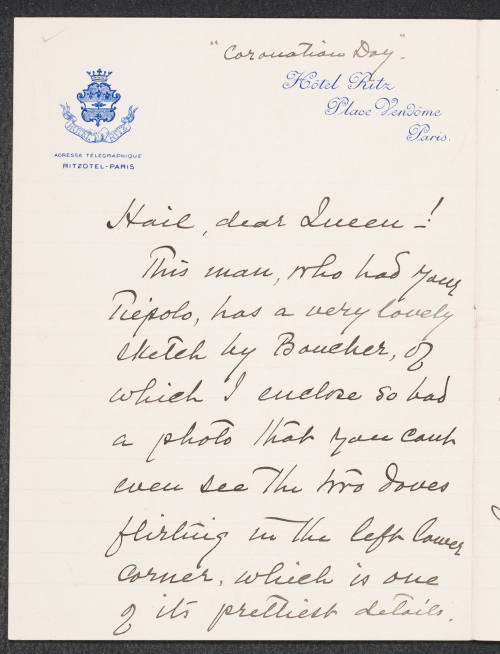 "Coronation Day"
Hôtel Ritz
Place Vendôme
Paris.
HÔTEL RITZ
ADRESSE TÉLÉGRAPHIQUE
RITZOTEL-PARIS
Hail, dear Queen—!
This man, who had your
Tiépolo, has a very lovely
sketch by Boucher, of
which I enclose so bad
a photo that you can't
even see the two doves
flirting in the left lower
corner, which is one
of its prettiest details.